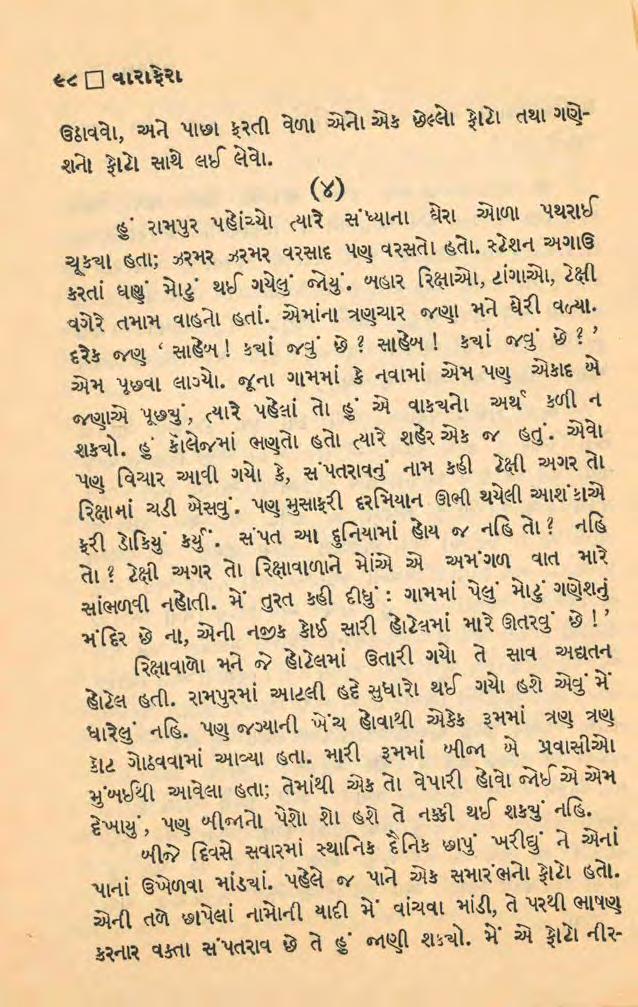 ૯૮ □ વારાફેરા
ઉઠાવવો, અને પાછા ફરતી વેળા એનો એક છેલ્લો ફોટો તથા ગણે-
શનો ફોટો સાથે લઈ લેવો.
(૪)
હું રામપુર પહોંચ્યો ત્યારે સંધ્યાના ઘેરા ઓળા પથરાઈ
ચૂકયા હતા; ઝરમર ઝરમર વરસાદ પણ વરસતો હતો. સ્ટેશન અગાઉ
કરતાં ઘણું મોટું થઈ ગયેલું જોયું. બહાર રિક્ષાઓ, ટાંગાઓ, ટેક્ષી
વગેરે તમામ વાહનો હતાં. એમાંના ત્રણચાર જણા મને ઘેરી વળ્યા.
દરેક જણ ‘ સાહેબ ! કયાં જવું છે ? સાહેબ ! કયાં જવું છે ? ’
એમ પૂછવા લાગ્યો. જૂના ગામમાં કે નવામાં એમ પણ એકાદ બે
જણાએ પૂછયું, ત્યારે પહેલાં તો હું એ વાકયનો અર્થ કળી ન
શકયો. હું કૉલેજમાં ભણતો હતો ત્યારે શહેર એક જ હતું. એવો
પણ વિચાર આવી ગયો કે, સંપતરાવનું નામ કહી ટેક્ષી અગર તો
રિક્ષામાં ચડી બેસવું. પણ મુસાફરી દરમિયાન ઊભી થયેલી આશંકાએ
ફરી ડોકિયું કર્યું. સંપત આ દુનિયામાં હોય જ નહિ તો ? નહિ
તો ? ટેક્ષી અગર તો રિક્ષાવાળાને મોંએ એ અમંગળ વાત મારે
સાંભળવી નહોતી. મેં તુરત કહી દીધું : ગામમાં પેલું મોટું ગણેશનું
મંદિર છે ના, એની નજીક કોઈ સારી હોટેલમાં મારે ઊતરવું છે ! ’
રિક્ષાવાળો મને જે હોટેલમાં ઉતારી ગયો તે સાવ અદ્યતન
હોટેલ હતી. રામપુરમાં આટલી હદે સુધારો થઈ ગયો હશે એવું મેં
ધારેલું નહિ. પણ જગ્યાની ખેંચ હોવાથી એકેક રૂમમાં ત્રણ ત્રણ
કોટ ગોઠવવામાં આવ્યા હતા. મારી રૂમમાં બીજા બે પ્રવાસીઓ
મુંબઈથી આવેલા હતા; તેમાંથી એક તો વેપારી હોવો જોઈએ એમ
દેખાયું, પણ બીજાનો પેશો શો હશે તે નક્કી થઈ શકયું નહિ.
બીજે દિવસે સવારમાં સ્થાનિક દૈનિક છાપું ખરીદ્યું ને એનાં
પાનાં ઉખેળવા માંડયાં. પહેલે જ પાને એક સમારંભનો ફોટો હતો.
એની તળે છાપેલાં નામોની યાદી મેં વાંચવા માંડી, તે પરથી ભાષણ
કરનાર વક્તા સંપતરાવ છે તે હું જાણી શકયો. મેં એ ફોટો નીર-